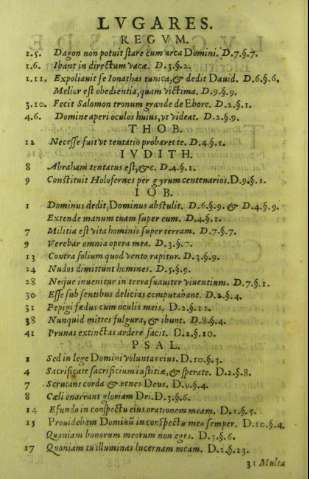 LVGARES.
REGVM.
1.5. Dagon non potuit stare cum arca Domini. D.7.§.7.
1.6. Ibant in directum vacæ. D.3.§.2.
1.11. Expoliauit se Ionathas tunica, & dedit Dauid. D.6.§.6.
Melior est obedientia, quam victima. D.9.§.9.
3.10. Fecit Salomon tronum grande de Ebore. D.2.§.1.
4.6. Domine aperi oculos huius, vt videat. D.2.§.9.
THOB.
12 Necesse fuit vt tentatio probaret te. D.4.§.1.
IVDITH.
8 Abraham tentatus est, &c. D.4.§.1.
9 Constituit Holofernes per gyrum centenarios. D.9.§.1.
IOB.
1 Dominus dedit, Dominus abstulit. D.6.§.9. & D.4.§.9.
Extende manum tuam super eum. D.4.§.1.
7 Militia est vita hominis super terram. D.7.§.7.
9 Verebar omnia opera mea. D.3.§.7.
13 Contra folium quod vento rapitur. D.3.§.9.
24 Nudos dimittunt homines. D.5.§.9.
28 Neque inuenitur in terra suauiter viuentium. D.7.§.1.
30 Esse sub sentibus delicias computabant. D.2.§.4.
31 Pepigi fœdus cum oculis meis. D.2.§.11.
38 Nunquid mittes fulgura, & ibunt. D.8.§.4.
41 Prunas extinctas ardere facit. D.2.§.10.
PSAL.
1 Sed in lege Domini voluntas eius. D.10.§.3.
4 Sacrificate sacrificium iustitiæ, & sperate. D.2.§.8.
7 Scrutans corda & renes Deus. D.9.§.4.
8 Cœli enarrant gloriam Dei. D.3.§.6.
14 Efundo in conspectu eius orationem meam. D.1.§.5.
15 Prouidebam Dominū in conspectu meo semper. D.10.§.4.
Quoniam bonorum meorum non eges. D.3.§.6.
17 Quoniam tu illuminas lucernam meam. D.2.§.13.
31 Multa